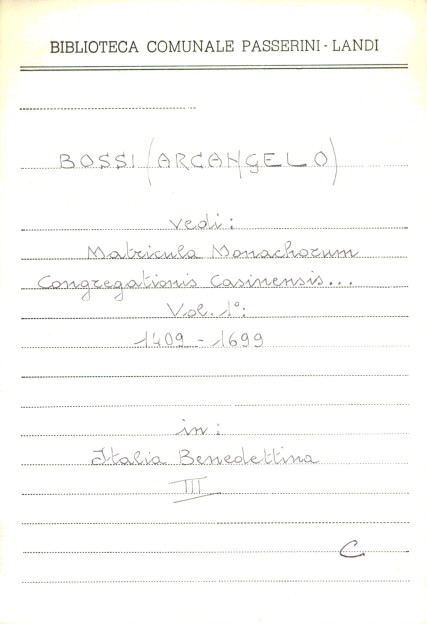 BIBLIOTECA COMUNALE PASSERINI - LANDI
BOSSI (ARCANGELO)
vedi:
Matricula Monachorum
Congregationis Casinensis...
Vol. 1°:
1409 - 1699
in:
Italia Benedettina
III
C